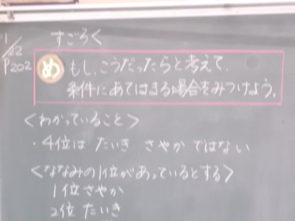 1/22
P202
すごろく
め もし、こうだったらと考えて、
条件にあてはまる場合をみつけよう。
<わかっていること>
・4位は たいき さやか ではない
<ななみの1位があっているとする>
1位 さやか
2位 たいき